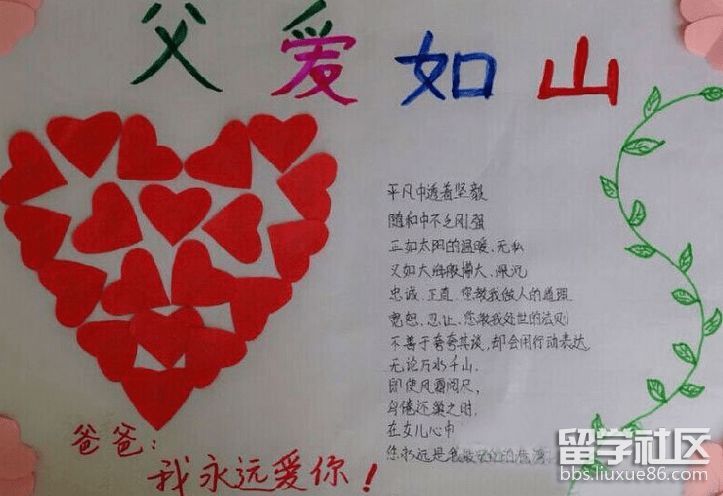 父爱如山
平凡中透着坚毅
随和中不乏刚强
正如太阳的温暖、无私
又如大海般博大、深沉
忠诚、正直、您教我做人的道理
宽恕、忍让、您教我处世的法则
不善于夸夸其谈，却会用行动表达
无论万水千山，
即使风霜闭尺，
鸟倦还巢之时，
在女儿心中
您永远是我
爸爸：
我永远爱你！
留学社区
bbs.liuxue86.com